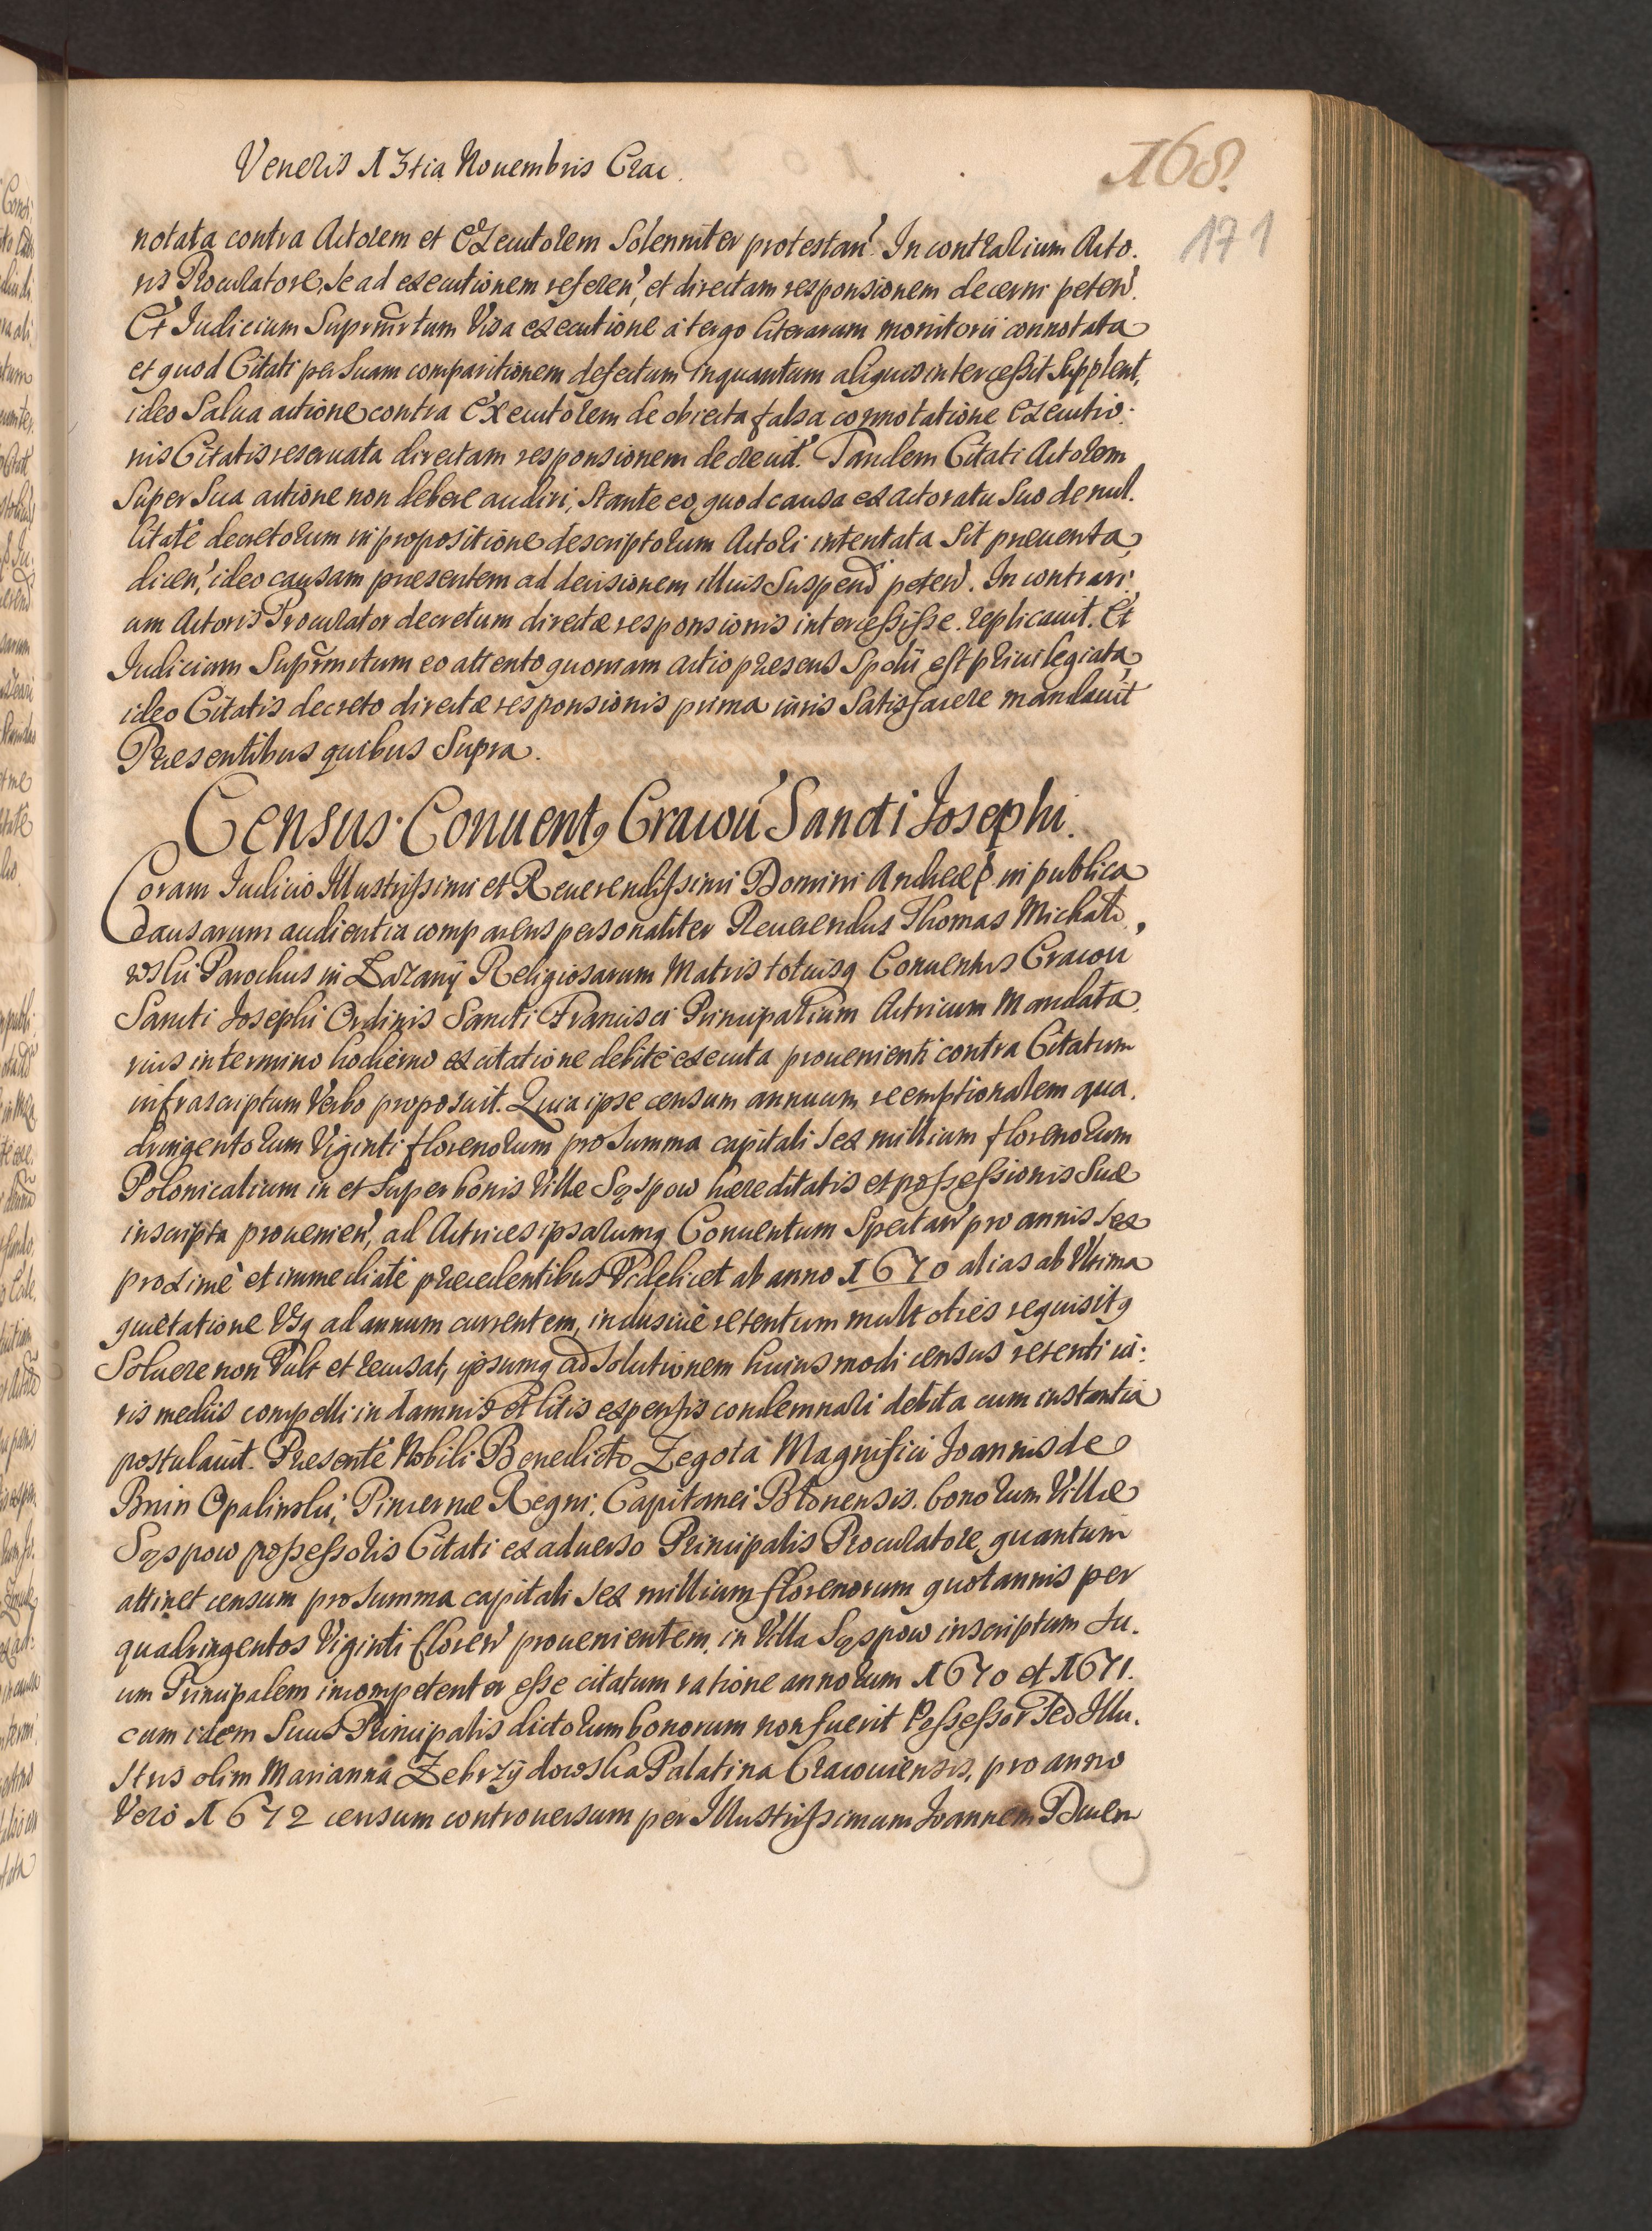 Veneris 13tia Nouembris Crac.
168.
171
notata contra Actorem et Executorem Solenniter protestan? In contrarium Acto-
ris Procuratore, se ad executionem referen?, et directam responsionem decerni peten?.
Et Iudicium Suprmtum Visa executione a tergo literarum monitorii connotata
et quod Citati per Suam comparitionem defectum inquantum aliquis intercessit Supplent,
ideo Salua actione contra Executorem de obiecta falsa connotatione Executio-
nis Citatis reseruata directam responsionem decreuit. Tandem Citati Actorem
Super Sua actione non debere audiri, Stante eo, quod causa ex actoratu Suo de nul-
litate decretorum in propositione descriptorum Actori intentata Sit preuenta
dicen?, ideo causam praesentem ad decisionem illius Suspend? peten?. In contrari-
um Actoris Procurator decretum directae responsionis intercessisse replicauit. Et
Iudicium Suprmtum eo attento quoniam actio praesens Spolii est priuilegiata,
ideo Citatis decreto directae responsionis prima iuris Satisfacere mandauit
Praesentibus quibus Supra.
Census Conuentq Cracou Sancti Josephi.
Coram Iudicio Illustrissimi et Reuerendissimi Domini Andreae in publica
Causarum audientia comparens personaliter Reuerendus Thomas Michał-
wski Parochus in Zarany Religiosarum Matris totiusq Conuentus Cracou
Sancti Josephi Ordinis Sancti Francisci Principalium Actricum Mandata-
rius in termino hodierno ex citatione debite executa prouenienti contra Citatum
infrascriptum Verbo proposuit. Quia ipse censum annuum reemptionalem qua-
dringentorum Viginti florenorum pro Summa capitali sex millium florenorum
Polonicalium in et Super bonis Villae Sąspow haereditatis et possessionis Suae
inscripta prouenien?, ad Actrices ipsarumq Conuentum Spectan? pro annis sex
proxime et immediate praecedentibus Videlicet ab anno 1670 alias ab Vltima
quietatione Vsq ad annum currentem, inclusiue retentum multoties requisitq
Soluere non Vult et recusat, ipsumq ad solutionem huiusmodi census retenti iu-
ris mediis compelli in damnis et litis expensis condemnari debita cum instantia
postulauit. Praesente Nobili Benedicto Zegota Magnifici Joannis de
Bnin Opalinski, Pincernae Regni, Capitanei Błonensis, bonorum Villae
Sąspow possessoris Citati ex aduerso Principalis Procuratore, quantum
attinet censum pro Summa capitali sex millium florenorum quotannis per
quadringentos Viginti floren? prouenientem, in Villa Sąspow inscriptum su-
um Principalem incompetenter esse citatum ratione annorum 1670 et 1671.
cum idem Suus Principalis dictorum bonorum non fuerit Possessor sed Illu-
stris olim Marianna Zebrzydowska Palatina Cracouiensis, pro anno
Vero 1672 censum controuersum per Illustrissimum Joannem